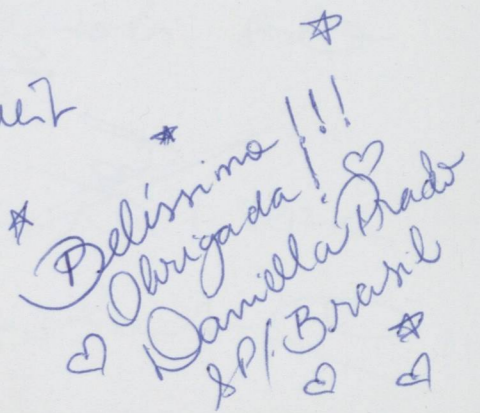 Belíssimo!!!
Obrigada!
Daniella Prado
SP/. Brasil